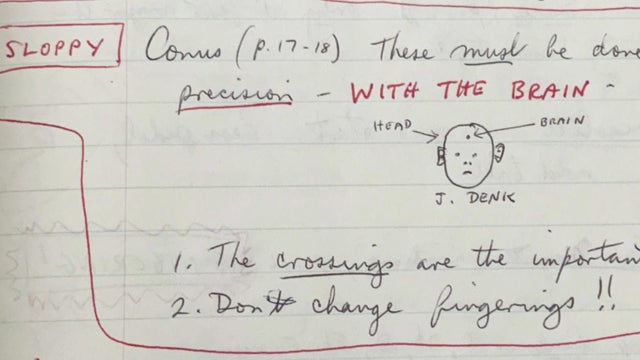 SLOPPY
Conus (p. 17-18) These must be done
precision - WITH THE BRAIN -
HEAD
BRAIN
J. DENK
1. The crossings are the importan
2. Don't change fingerings !!